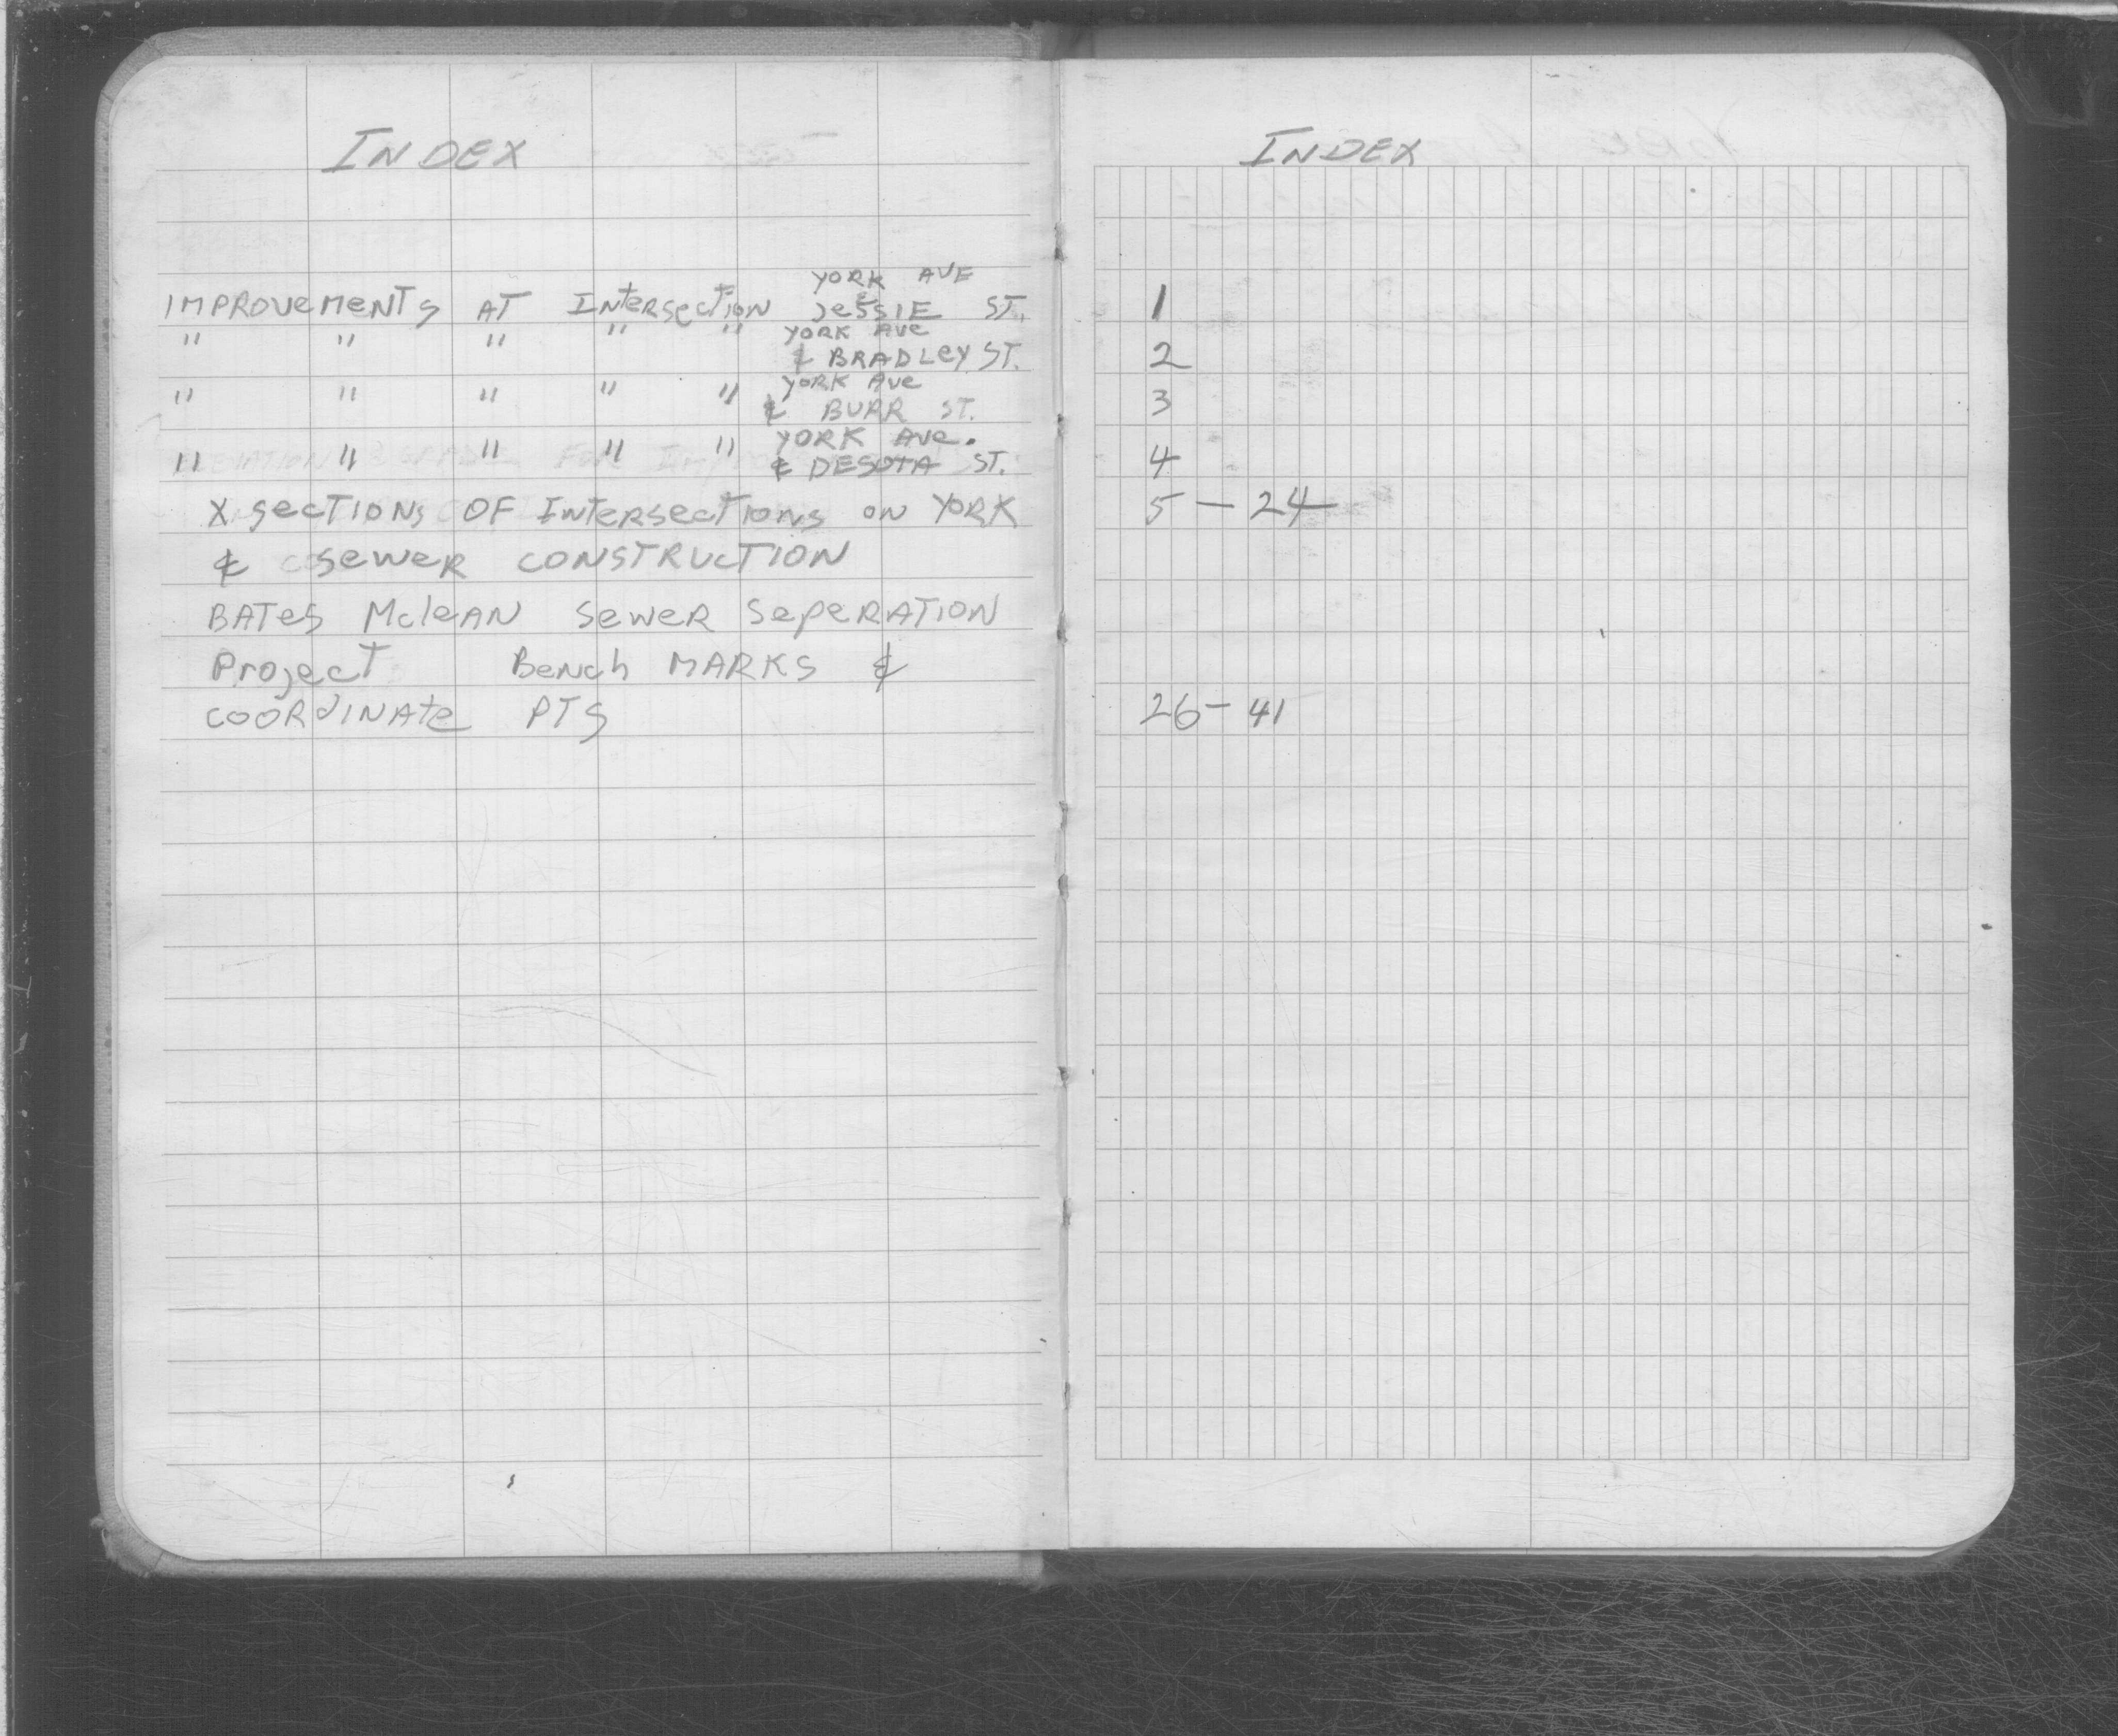 INDEX
YORK AVE
IMPROVEMENTS AT INTERSECTION & JESSIE ST.
" " " " " YORK AVE
& BRADLEY ST.
" " " " " YORK AVE
& BURR ST.
" " " " " YORK AVE.
& DESOTA ST.
X SECTIONS OF INTERSECTIONS ON YORK
& SEWER CONSTRUCTION
BATES McLEAN SEWER SEPERATION
PROJECT BENCH MARKS &
COORDINATE PTS
INDEX
1
2
3
4
5 - 24
26 - 41